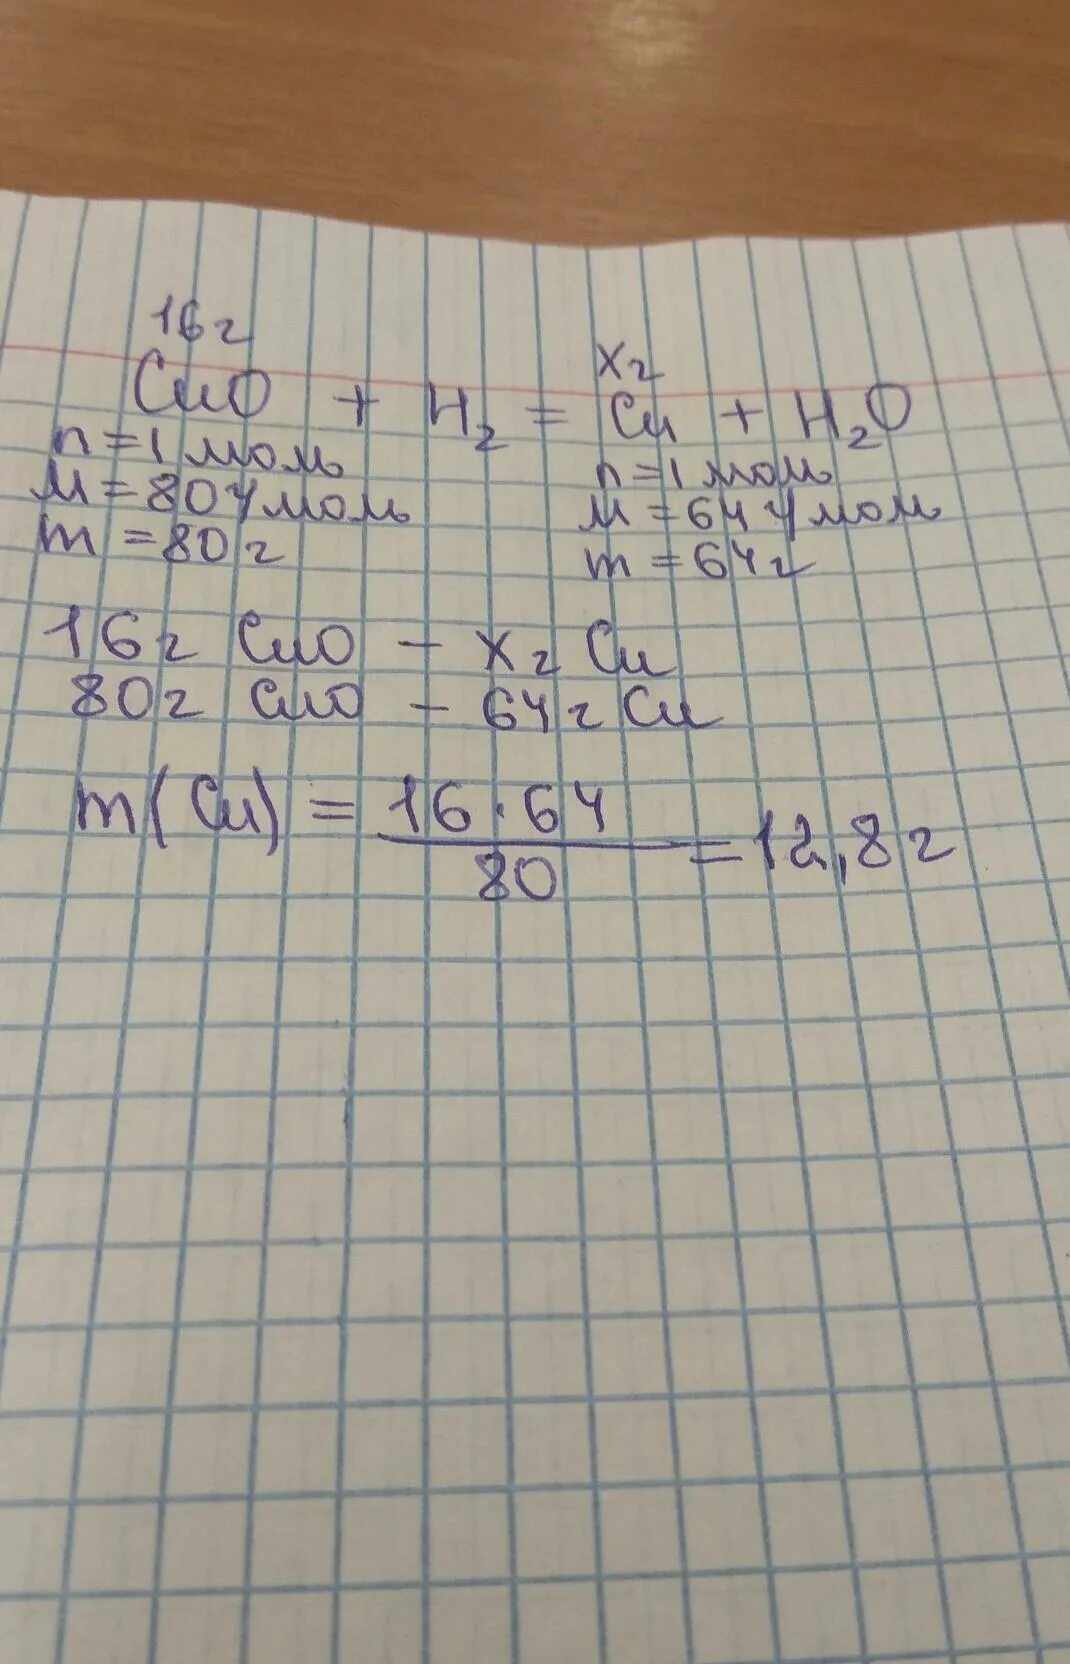 16г
xг
CuO + H₂ = Cu + H₂O
n = 1 моль
n = 1 моль
M = 80 г/моль
M = 64 г/моль
m = 80 г
m = 64 г
16 г CuO – x г Cu
80 г CuO – 64 г Cu
m(Cu) = 16 · 64 / 80 = 12,8 г